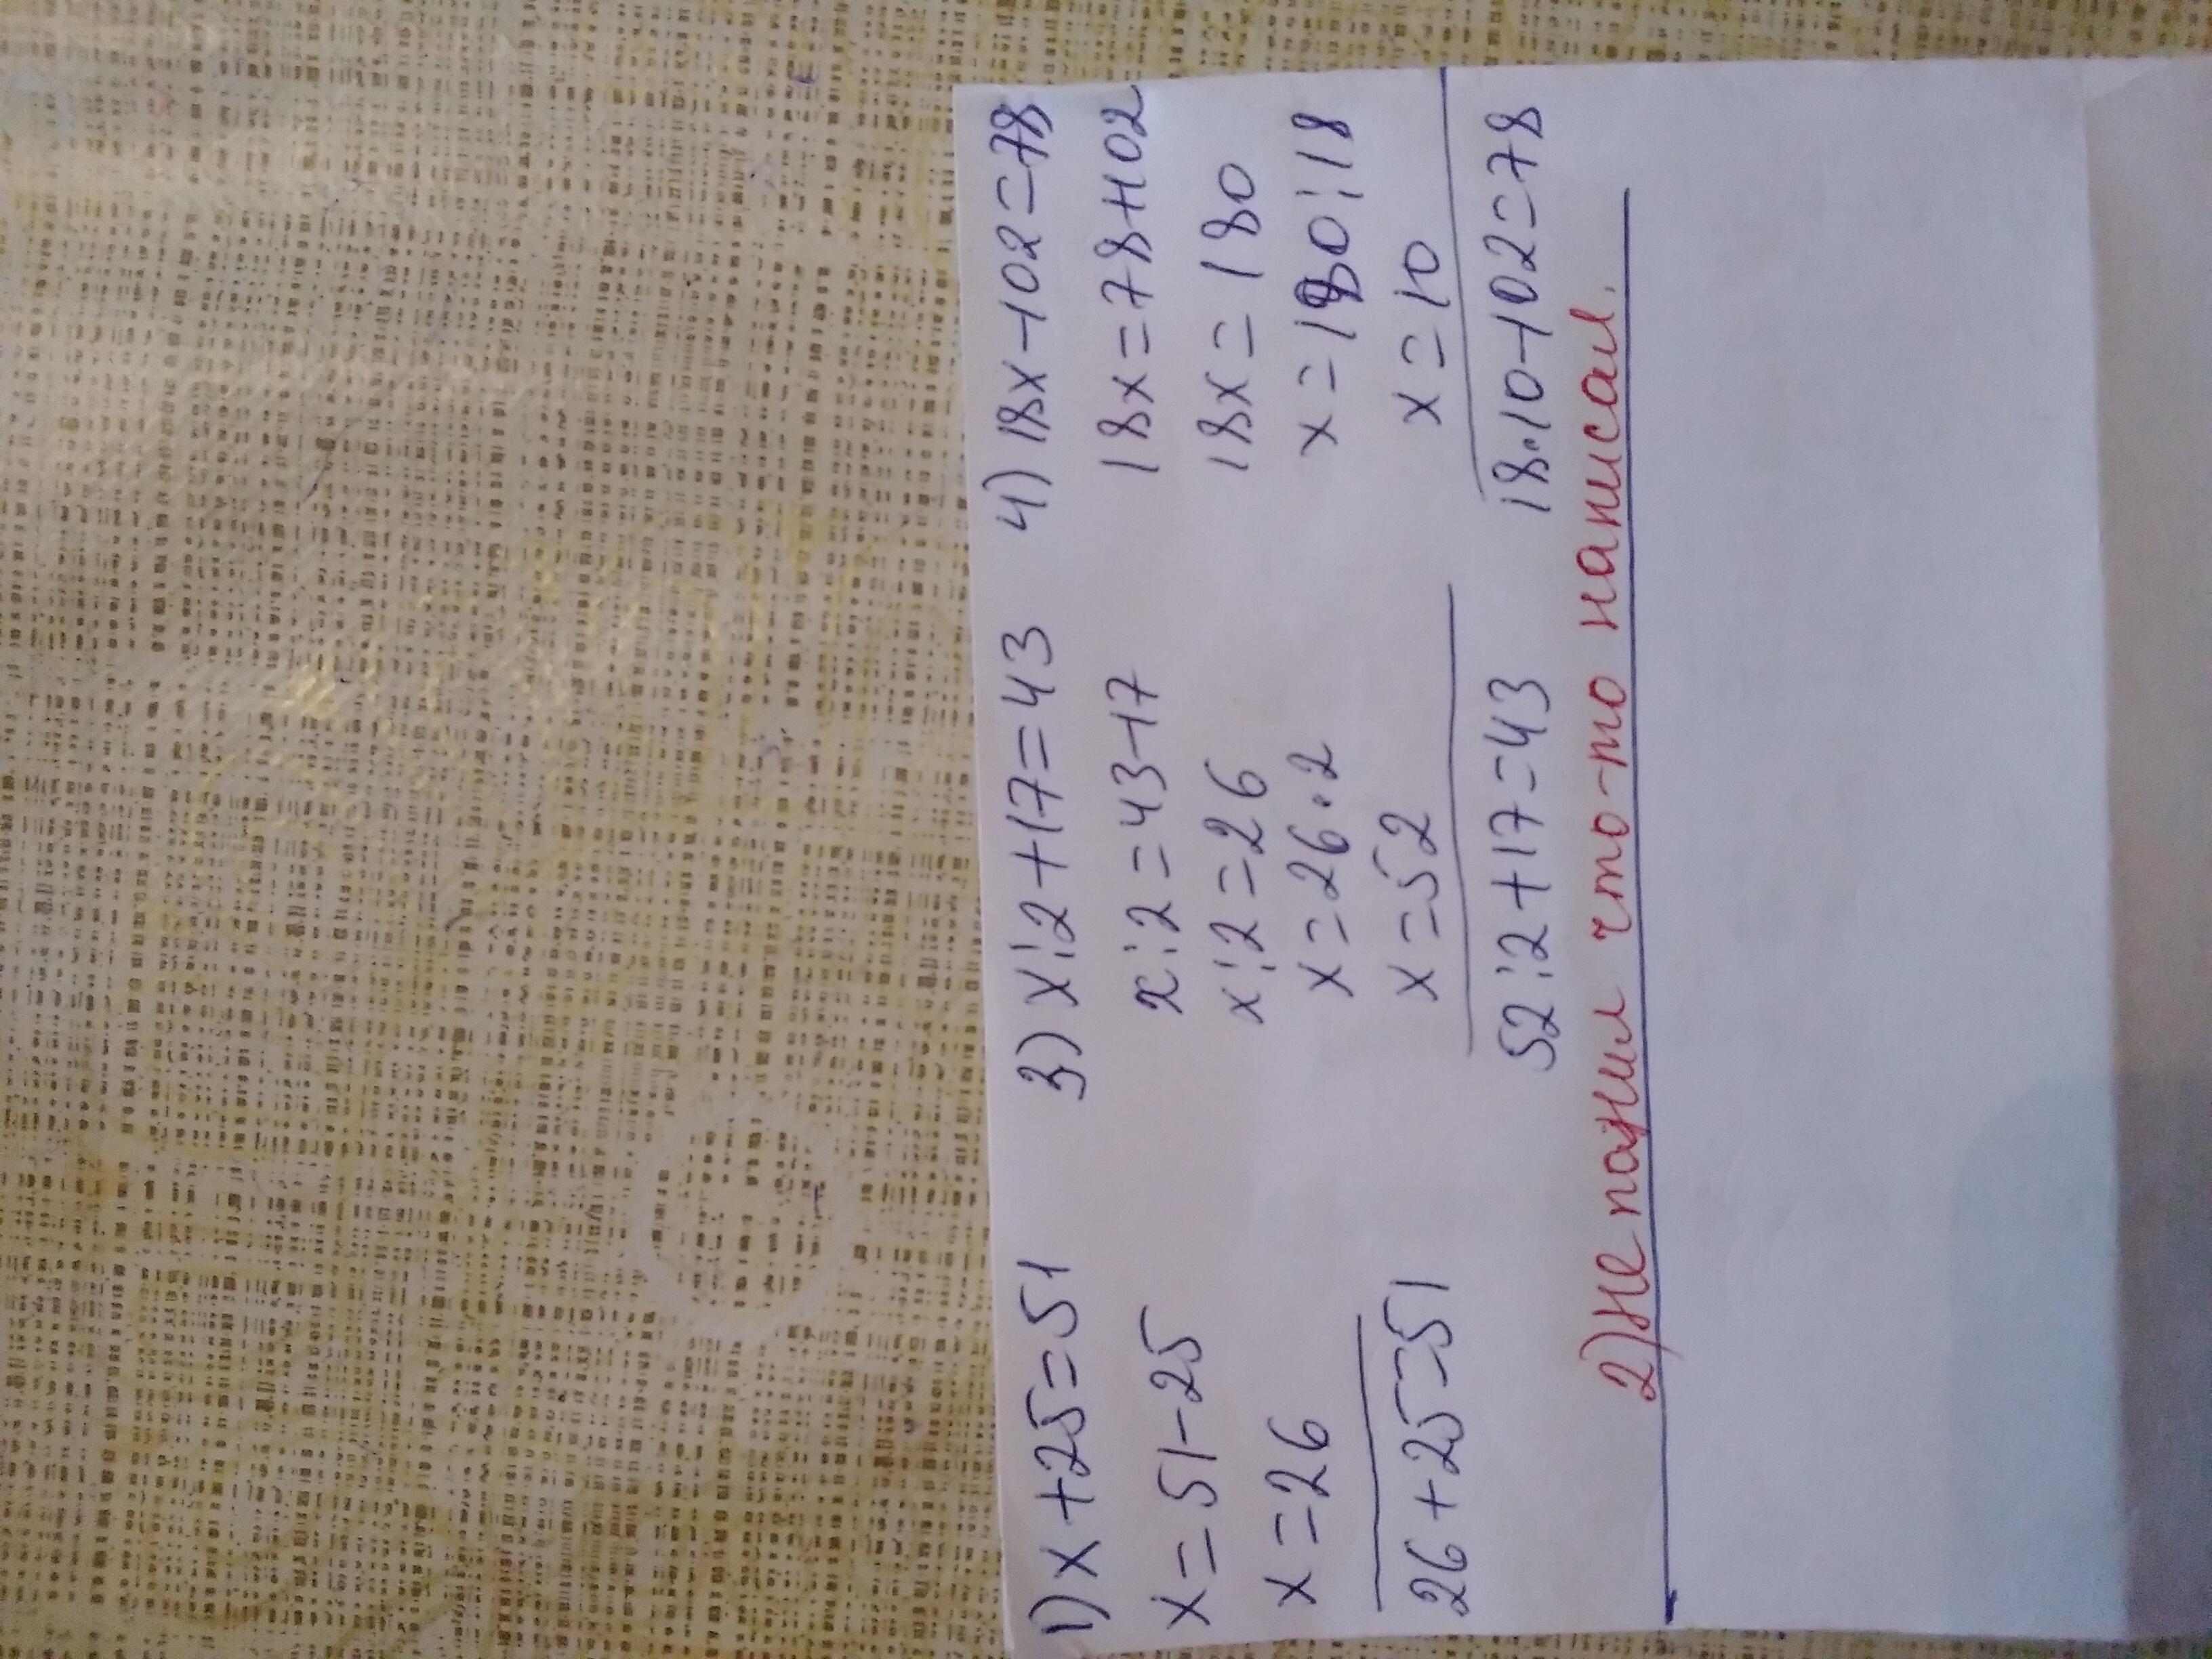 1) x+25=51
x=51-25
x=26
26+25=51
3) x:2+17=43
x:2=43-17
x:2=26
x=26·2
x=52
52:2+17=43
4) 18x-102=78
18x=78+102
18x=180
x=180:18
x=10
18·10-102=78
2) Не понял что-то написал.